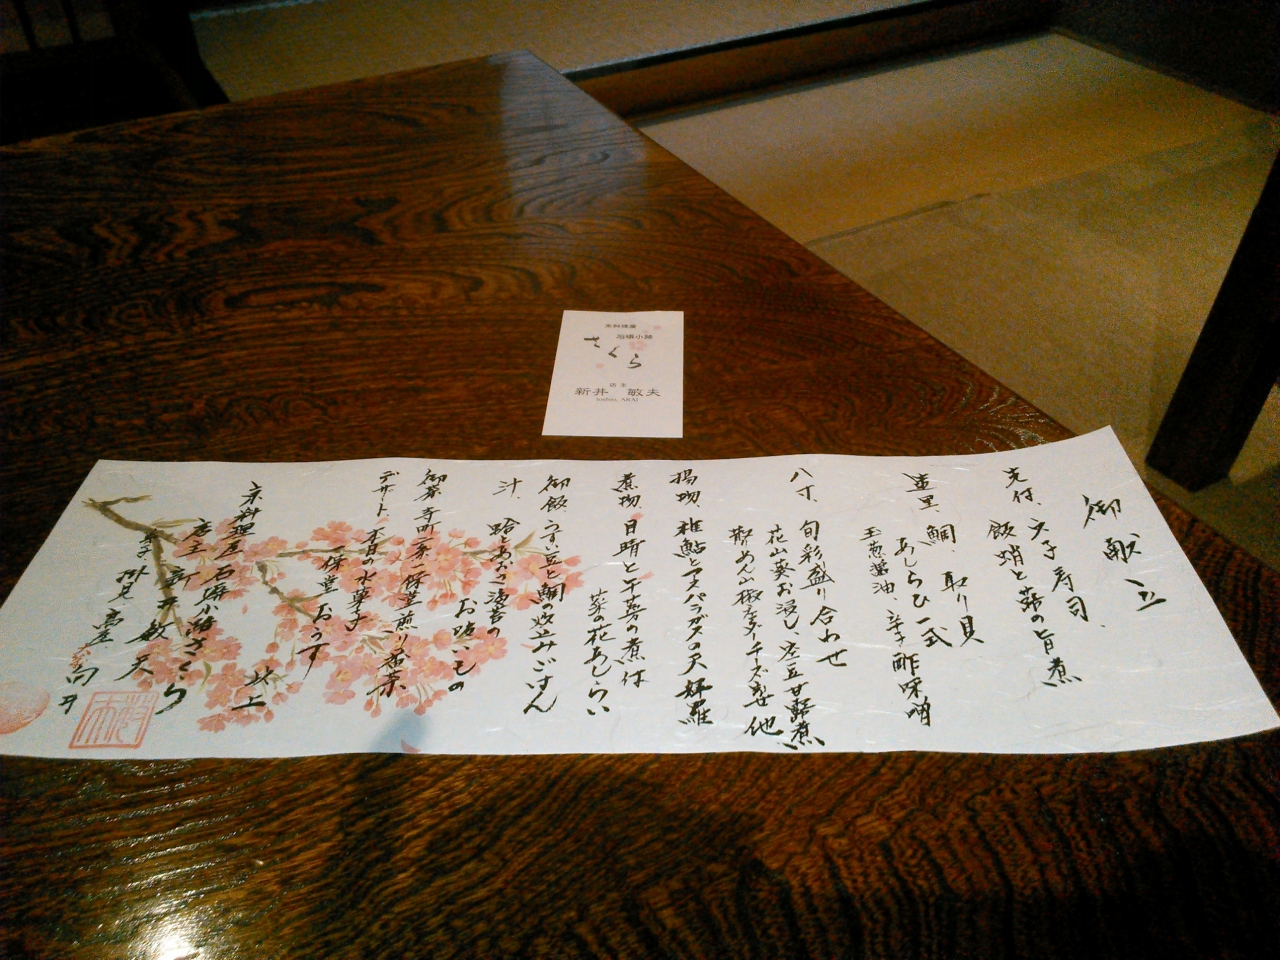 京料理屋
石塀小路
さくら
店主
新井 敏夫
toshio, ARAI
御献立
先付、穴子寿司、
飯蛸と蕗の旨煮
造里、鯛、取り貝
あしらひ一式
玉葱醤油、辛子酢味噌
八寸、旬彩盛り合わせ
花山葵お浸し、
チーズ
他
揚物、稚鮎とアスパラガスの天婦羅
煮物、
の煮付
菜の花あしらい
御飯、うすい豆と鯛の炊込みごはん
汁、蛤とあおさ海苔の
お吸いもの
御茶、寺町二条一保堂煎り番茶
デザート、本日の水菓子
一保堂、おうす
以上
京料理屋石塀小路さくら
店主 新井敏夫